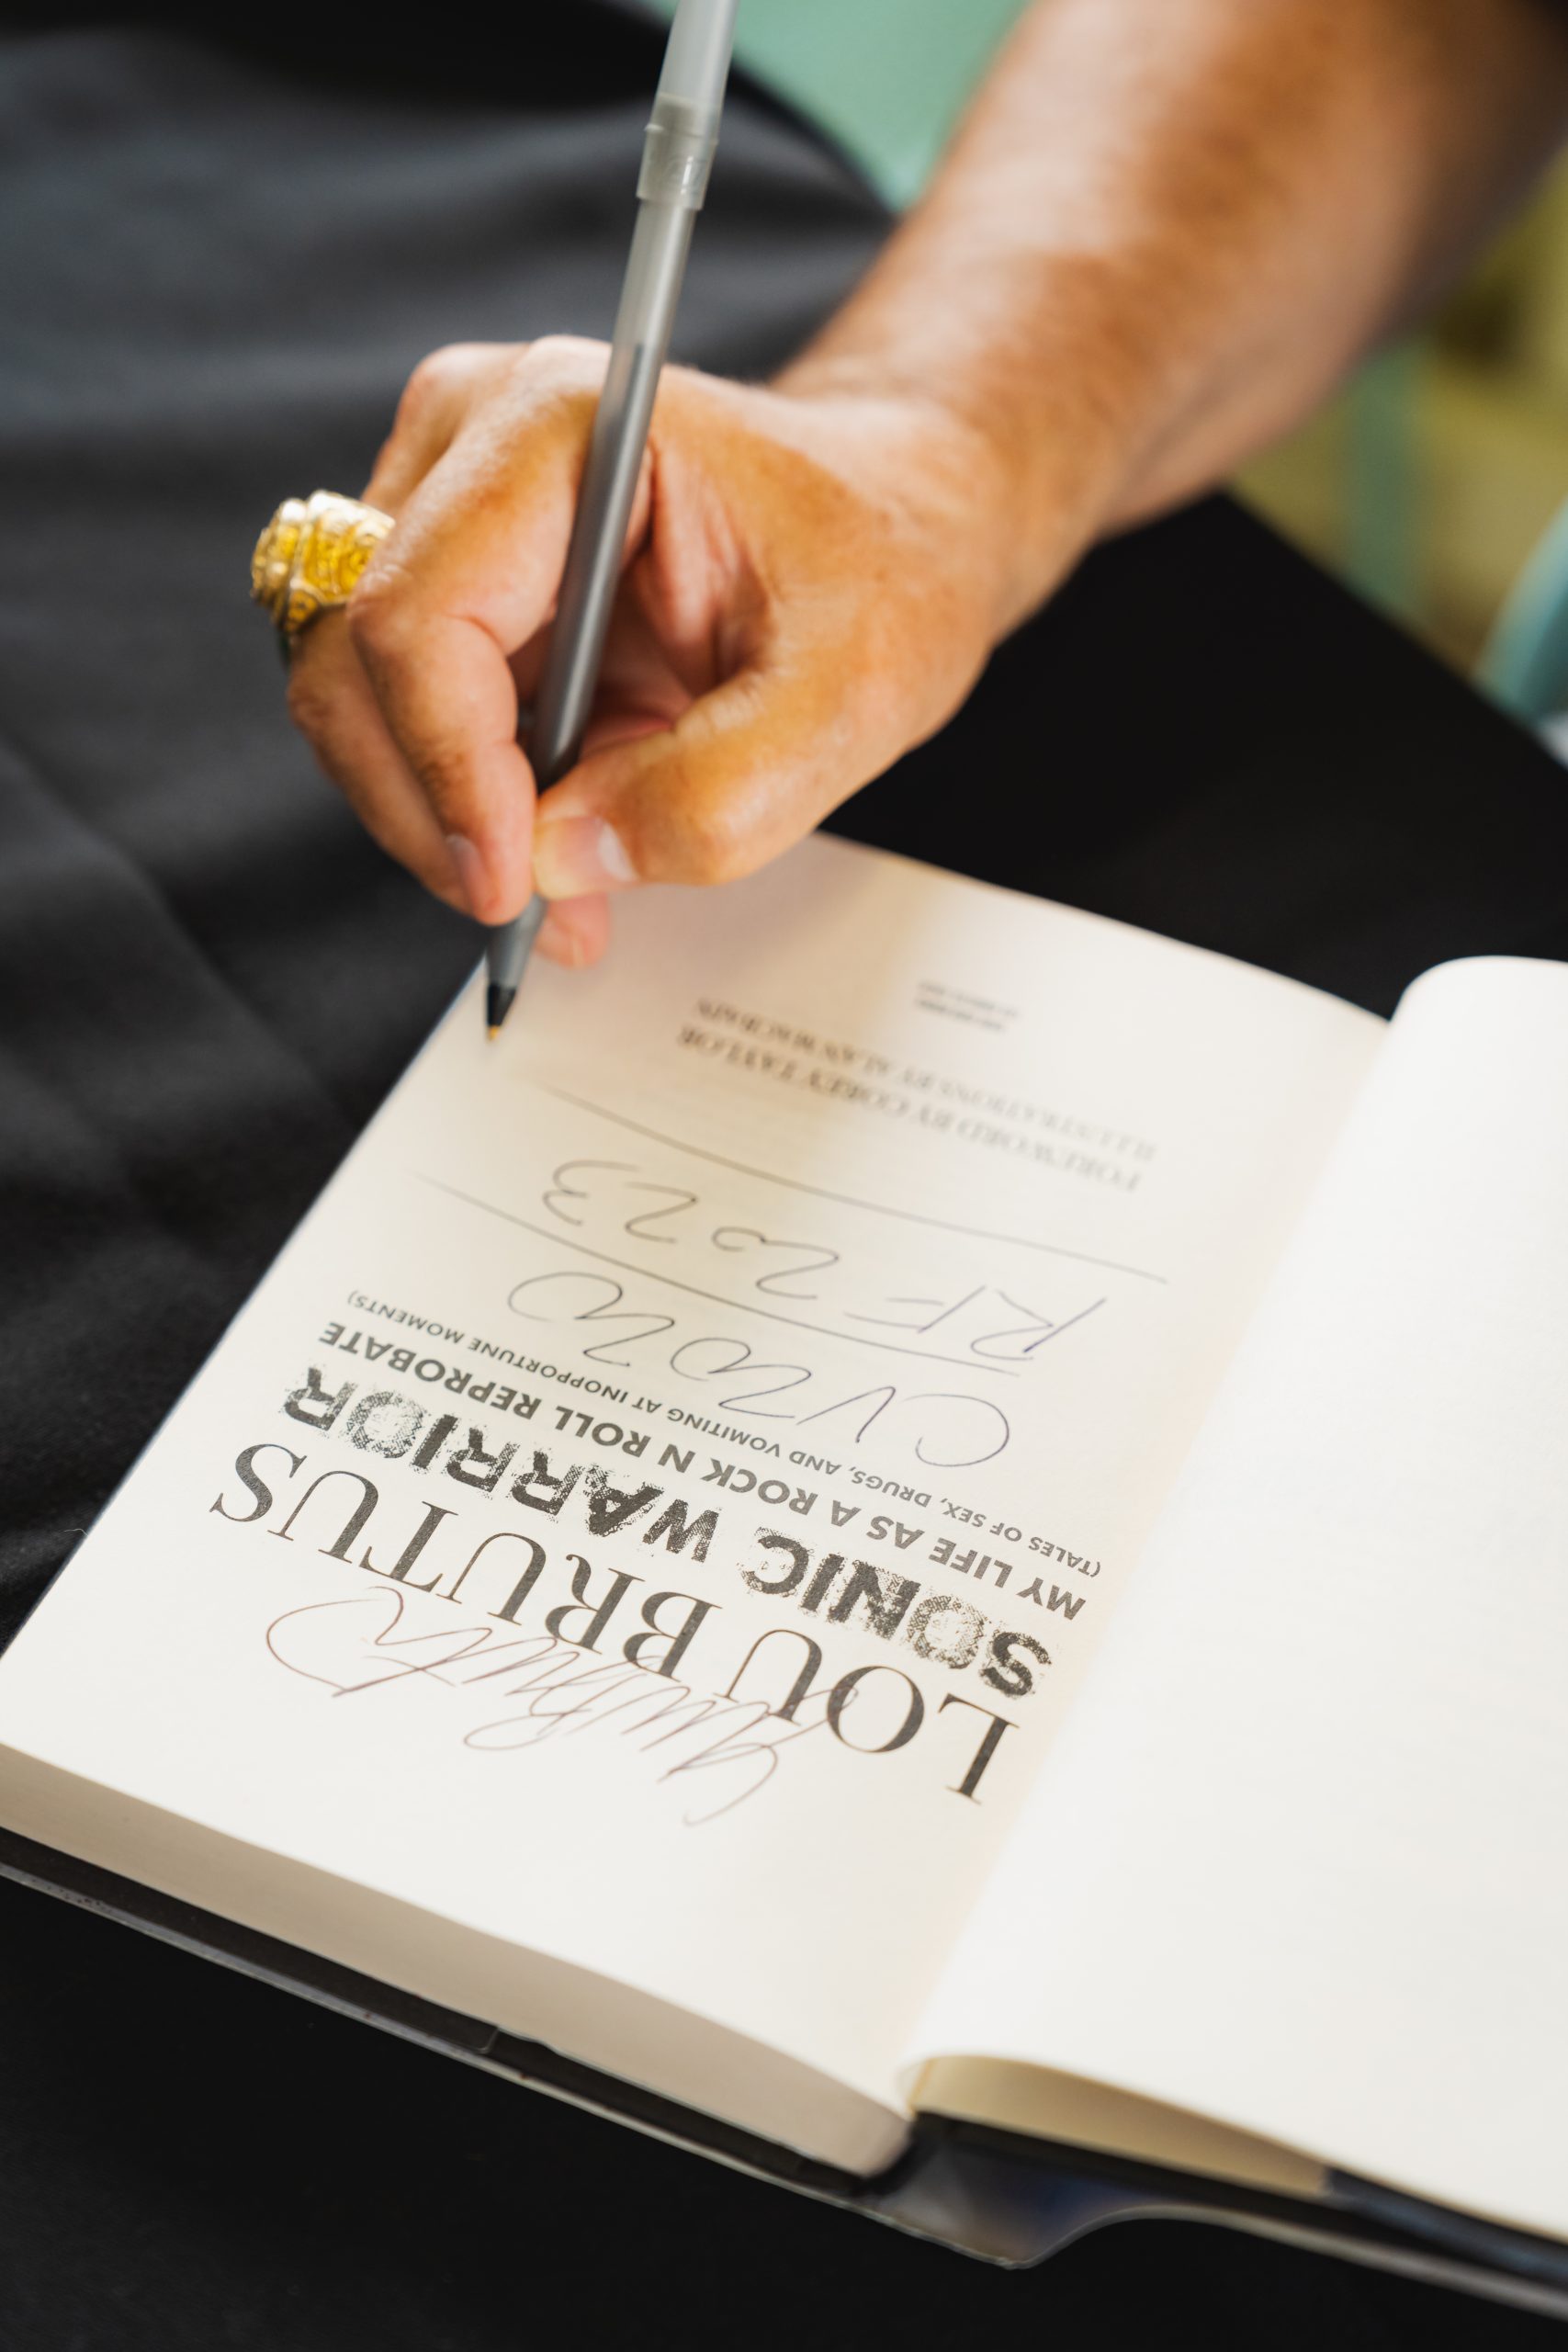 Lou Brutus
LOU BRUTUS
SONIC WARRIOR
MY LIFE AS A ROCK N ROLL REPROBATE
(TALES OF SEX, DRUGS, AND VOMITING AT INOPPORTUNE MOMENTS)
RF 2023
FOREWORD BY COREY TAYLOR
ILLUSTRATIONS BY ALAN MACBAIN